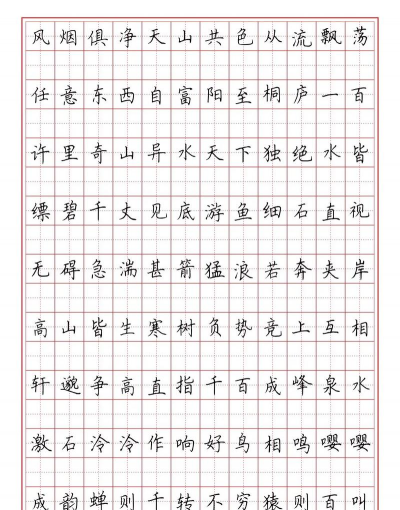 风烟俱净天山共色从流飘荡
任意东西自富阳至桐庐一百
许里奇山异水天下独绝水皆
缥碧千丈见底游鱼细石直视
无碍急湍甚箭猛浪若奔夹岸
高山皆生寒树负势竞上互相
轩邈争高直指千百成峰泉水
激石泠泠作响好鸟相鸣嘤嘤
成韵蝉则千转不穷猿则百叫